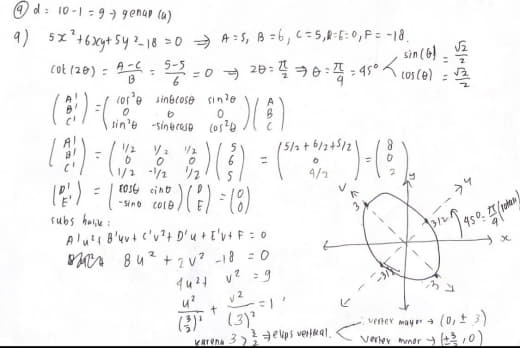 ④ d = 10-1 = 9 → genap (a)
9) 5x² + 6xy + 5y² - 18 = 0 ⇒ A = 5, B = 6, C = 5, D = E = 0, F = -18.
cot (2θ) = (A-C)/B = (5-5)/6 = 0 ⇒ 2θ = π/2 ⇒ θ = π/4 = 45° < sin(θ) = √2/2
cos(θ) = √2/2
(A' B' C') = (cos²θ sinθcosθ sin²θ / 0 0 0 / sin²θ -sinθcosθ cos²θ) (A B C)
(A' B' C') = (1/2 1/2 1/2 / 0 0 0 / 1/2 -1/2 1/2) (5 6 5) = (5/2 + 6/2 + 5/2 / 0 / 4/2) = (8 0 2)
(D' E') = (cosθ sinθ / -sinθ cosθ) (D E) = (0 0)
subs balik :
A'u² + B'uv + C'v² + D'u + E'v + F = 0
8u² + 2v² - 18 = 0
4u² + v² = 9
u²/(3/2)² + v²/(3)² = 1
karena 3 > 3/2 ⇒ elips vertikal. < vertex mayor → (0, ± 3)
vertex minor → (±3/2, 0)
v 3 y u
3/2 45° = π/4 (rotasi)
x
-3/2 -3